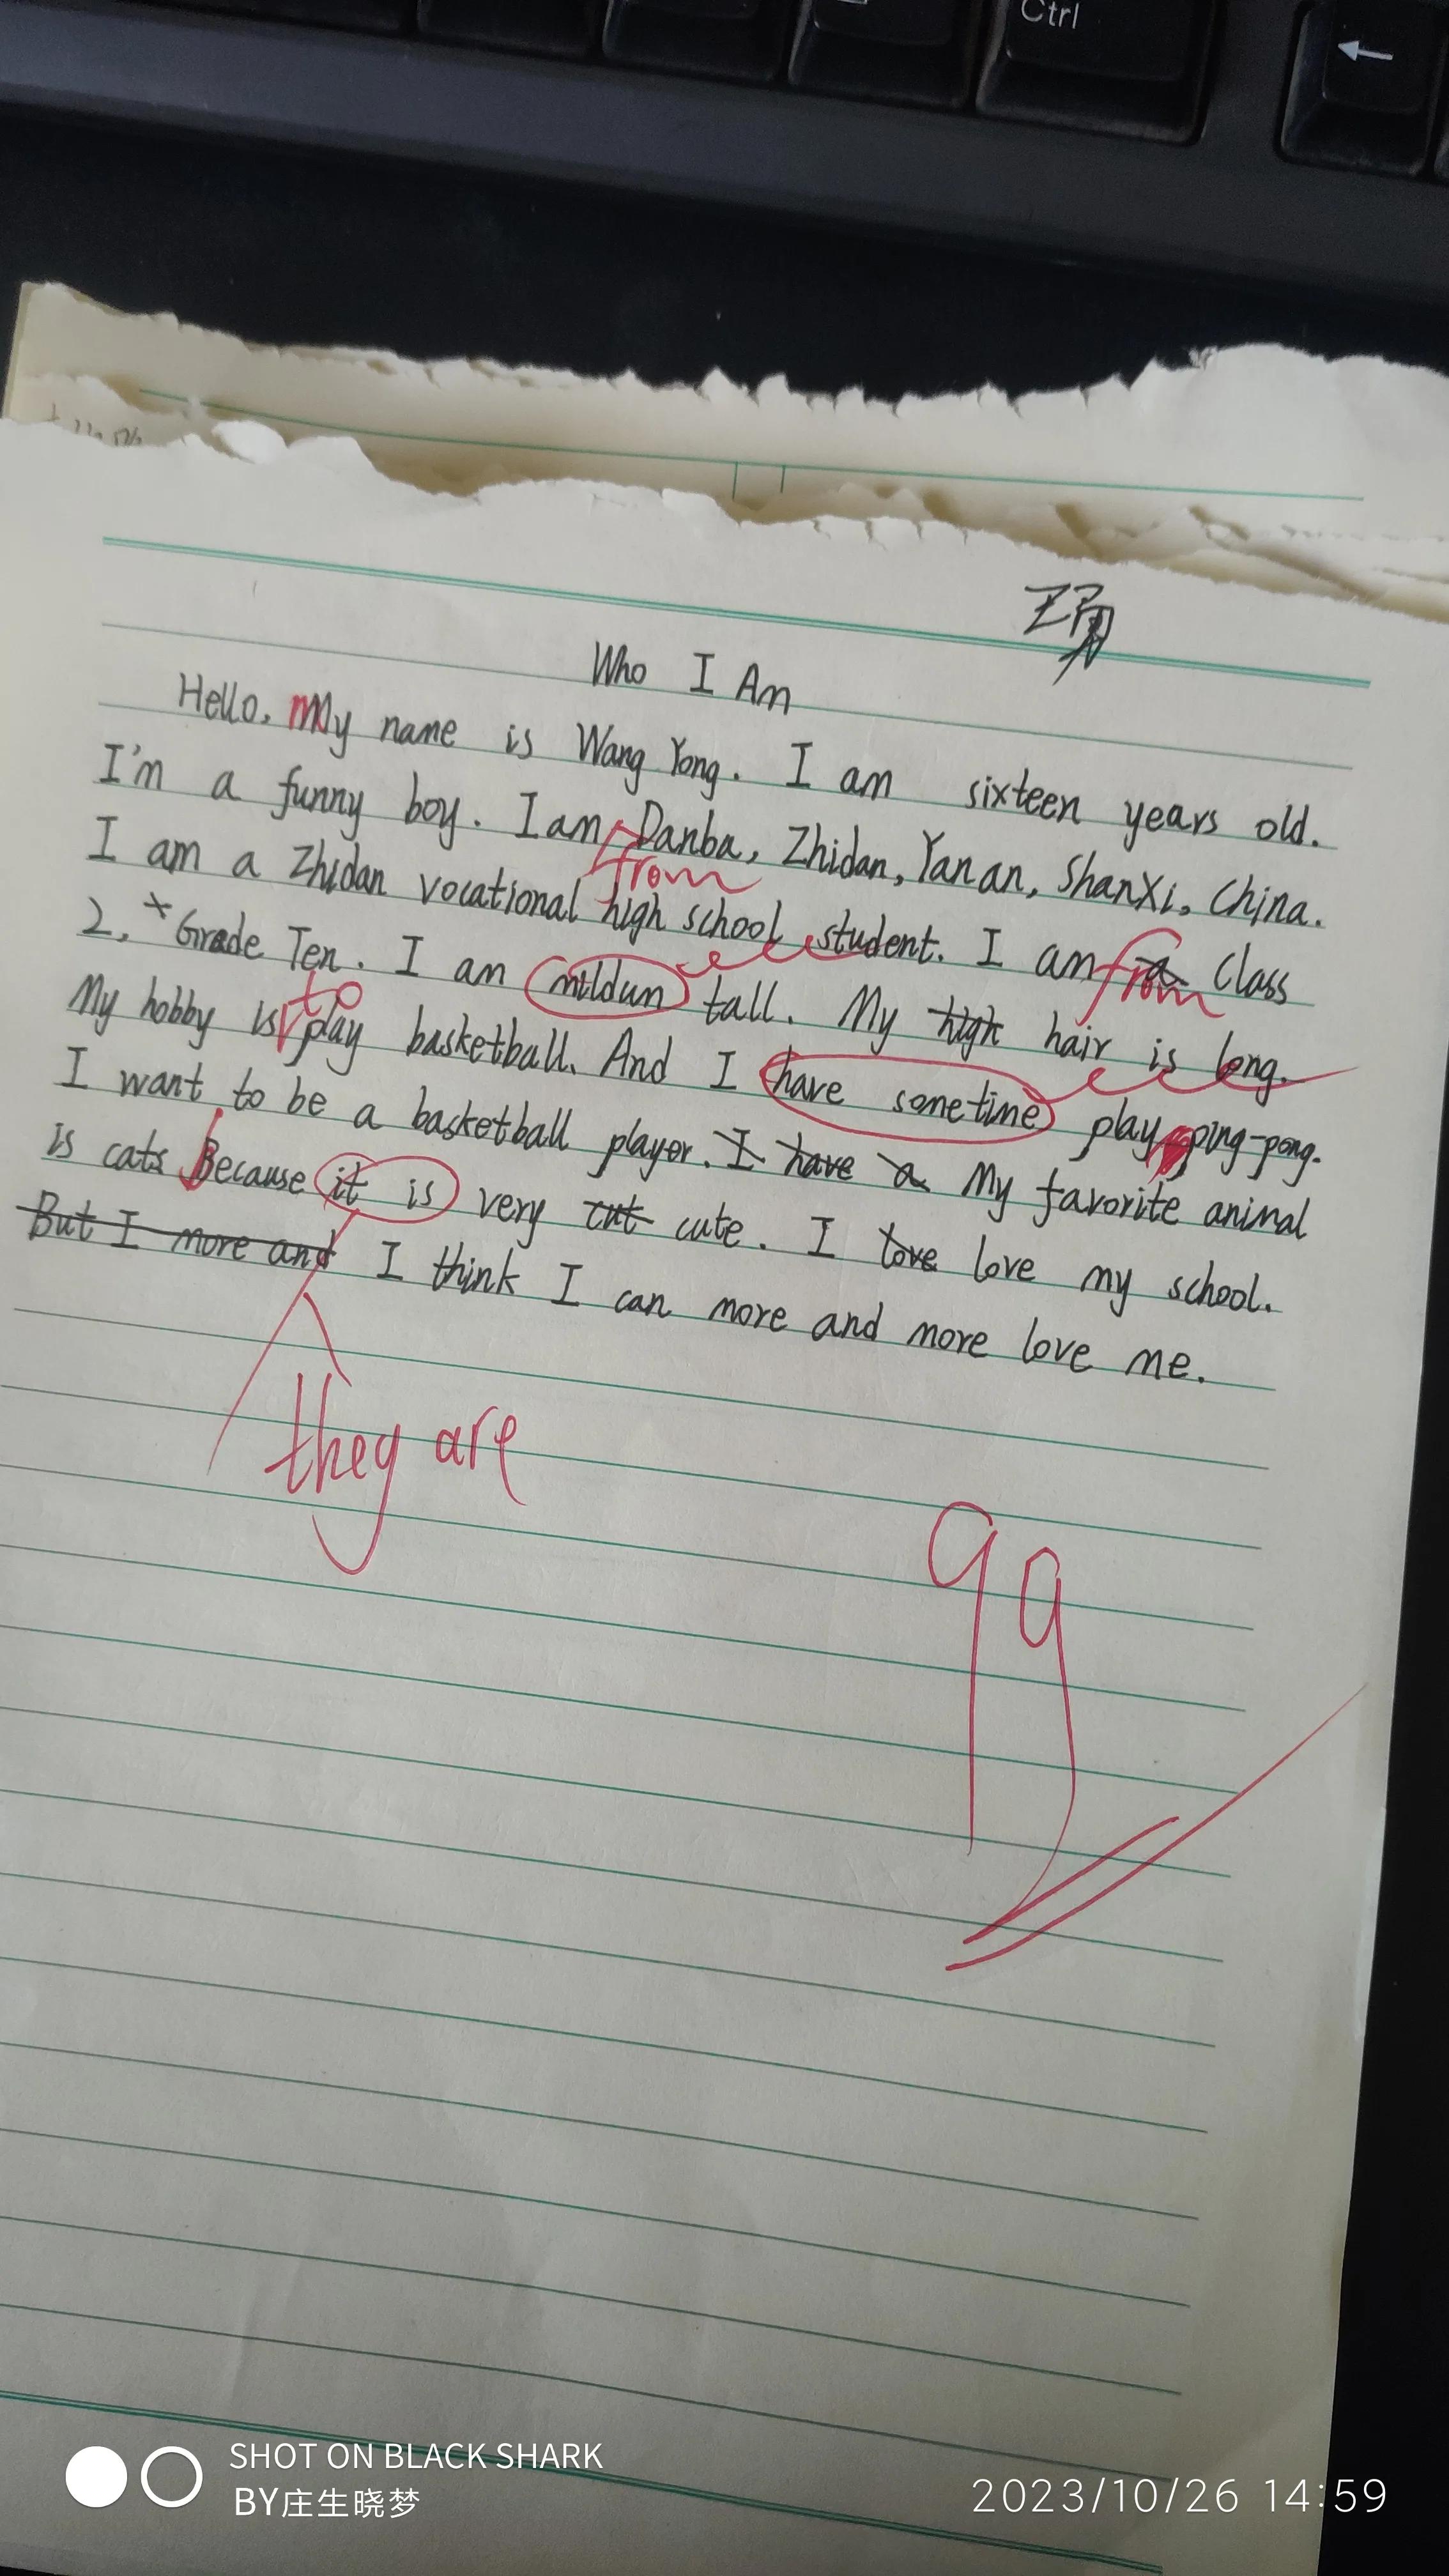 Ctrl
←
王勇
Who I Am
Hello. My name is Wang Yong. I am sixteen years old.
I'm a funny boy. I am from Danba, Zhidan, Yan an, ShanXi, China.
I am a Zhidan vocational high school student. I am from Class
2, Grade Ten. I am mildun tall. My high hair is long.
My hobby is to play basketball. And I have sometime play ping-pong.
I want to be a basketball player. I have a My favorite animal
is cats Because it is very cut cute. I love love my school.
But I more and I think I can more and more love me.
they are
99
SHOT ON BLACK SHARK
BY庄生晓梦
2023/10/26 14:59